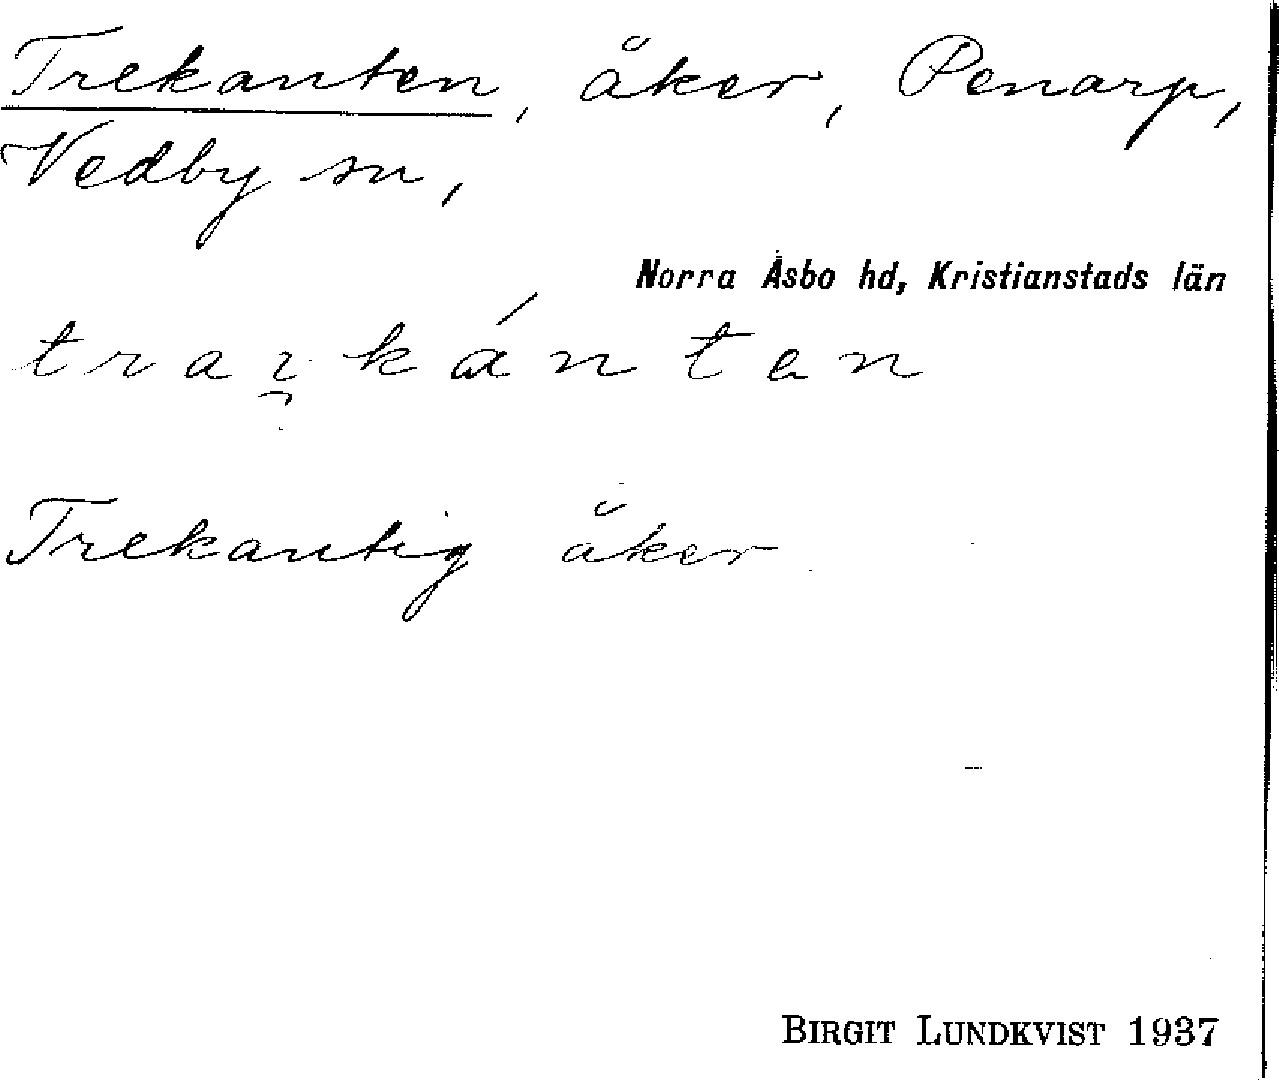 Trekanten, åker, Penarp,
Vedby sn,
Norra Åsbo hd, Kristianstads län
trai̯kántan
Trekantig åker
BIRGIT LUNDKVIST 1937